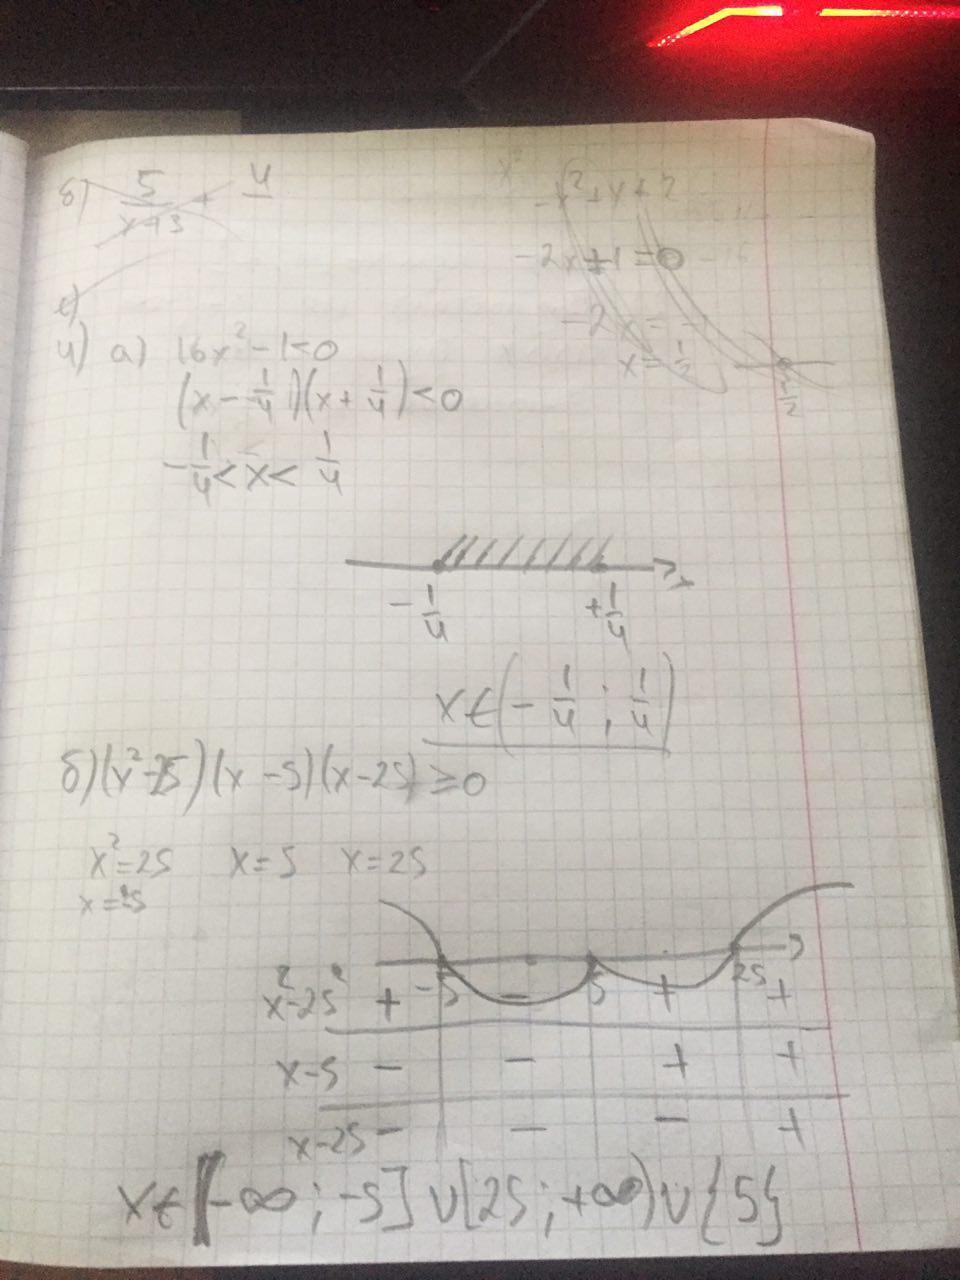 б) 5/(x+3) + 4/
-x²+x+2
-2x+1=0
-2x=
x=1/2
1/2
е)
4) а) 16x²-1<0
(x-1/4)(x+1/4)<0
-1/4<x<1/4
x
-1/4 +1/4
x∈(-1/4;1/4)
б)(x²-25)(x-5)(x-25)≥0
x²=25 x=5 x=25
-5 5 25
x²-25² + - + +
x-5 - - + +
x-25 - - - +
x∈(-∞;-5]∪[25;+∞)∪{5}